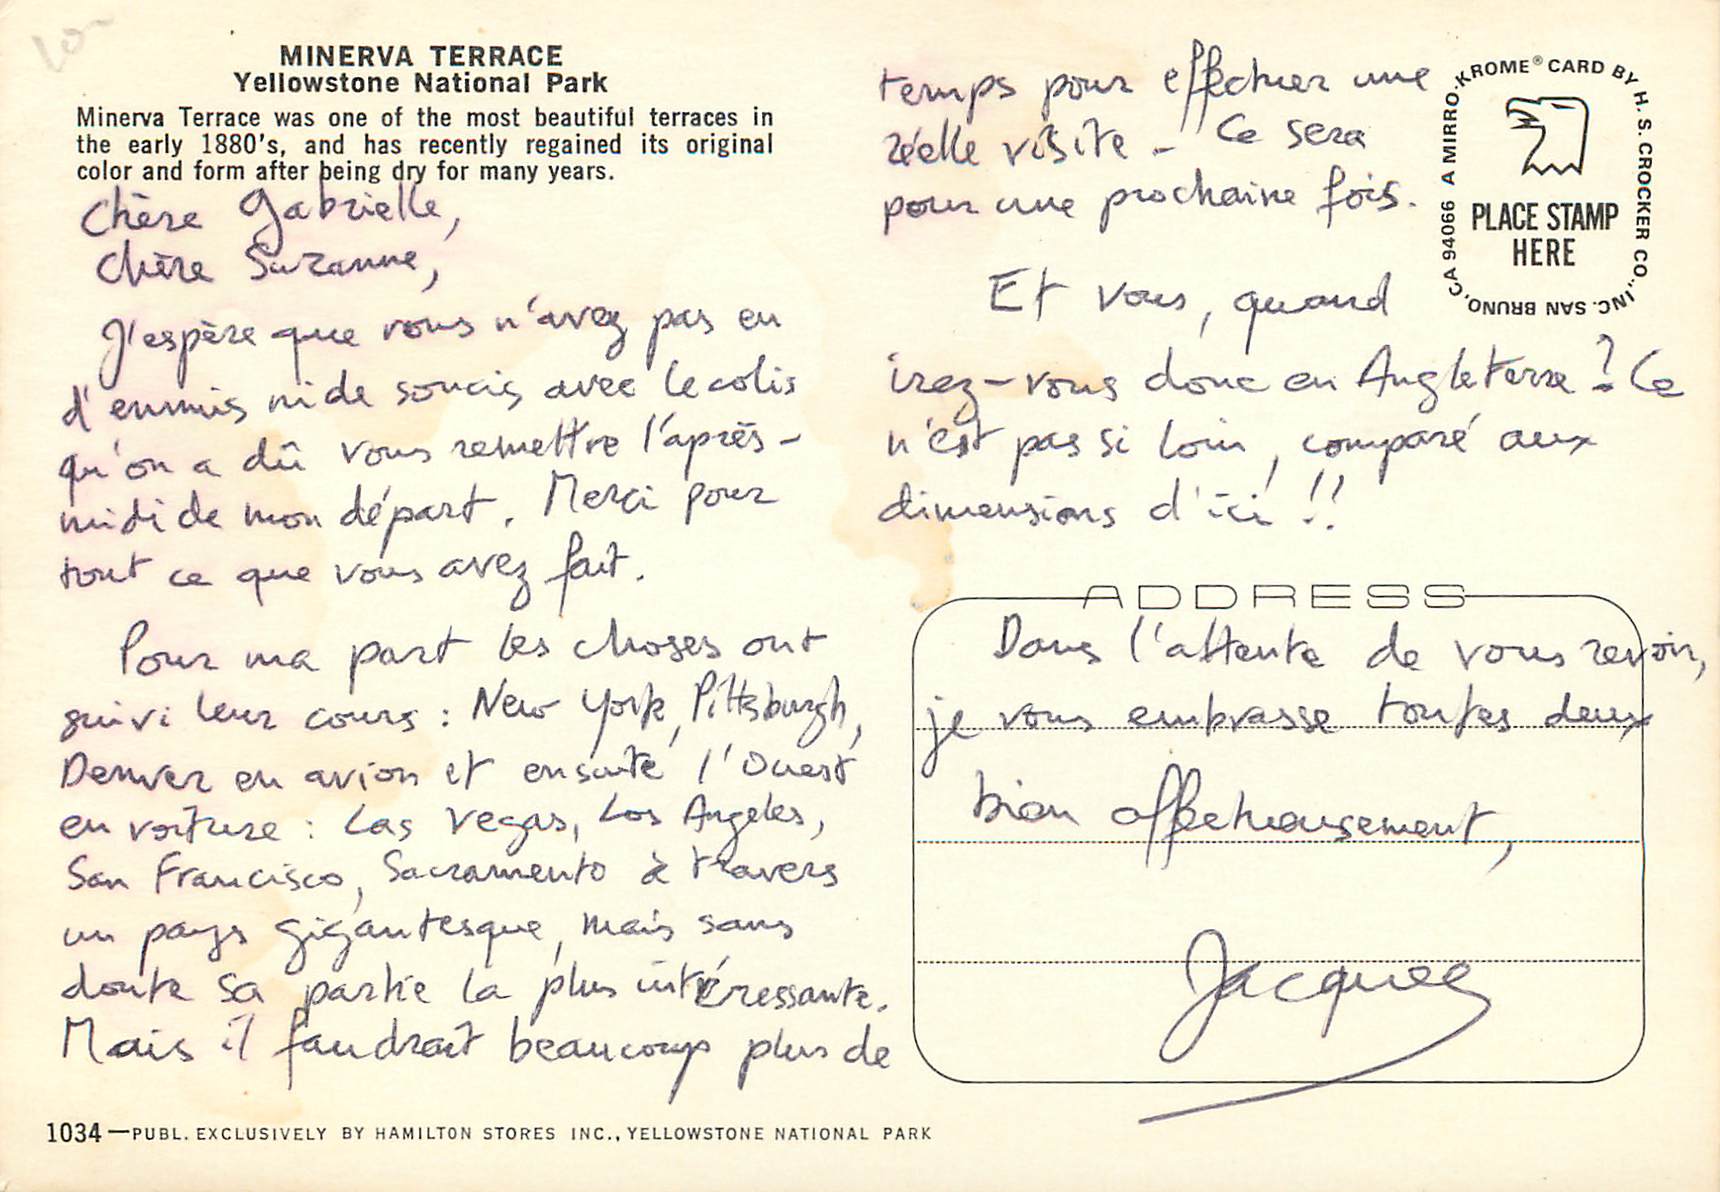 MINERVA TERRACE
Yellowstone National Park
Minerva Terrace was one of the most beautiful terraces in
the early 1880's, and has recently regained its original
color and form after being dry for many years.
Chère Gabrielle,
Chère Suzanne,
J'espère que vous n'avez pas eu
d'ennuis ni de soucis avec le colis
qu'on a dû vous remettre l'après-
midi de mon départ. Merci pour
tout ce que vous avez fait.
Pour ma part les choses ont
suivi leur cours : New York, Pittsburgh,
Denver en avion et ensuite l'Ouest
en voiture : Las Vegas, Los Angeles,
San Francisco, Sacramento à travers
un pays gigantesque, mais sans
doute sa partie la plus intéressante.
Mais il faudrait beaucoup plus de
1034—PUBL. EXCLUSIVELY BY HAMILTON STORES INC., YELLOWSTONE NATIONAL PARK
temps pour effectuer une
réelle visite - Ce sera
pour une prochaine fois.
Et vous, quand
irez-vous donc en Angleterre ? Ce
n'est pas si loin, comparé aux
dimensions d'ici !!
A MIRRO-KROME® CARD BY H. S. CROCKER CO., INC. SAN BRUNO, CA 94066
PLACE STAMP
HERE
ADDRESS
Dans l'attente de vous revoir,
je vous embrasse toutes deux
bien affectueusement,
Jacques